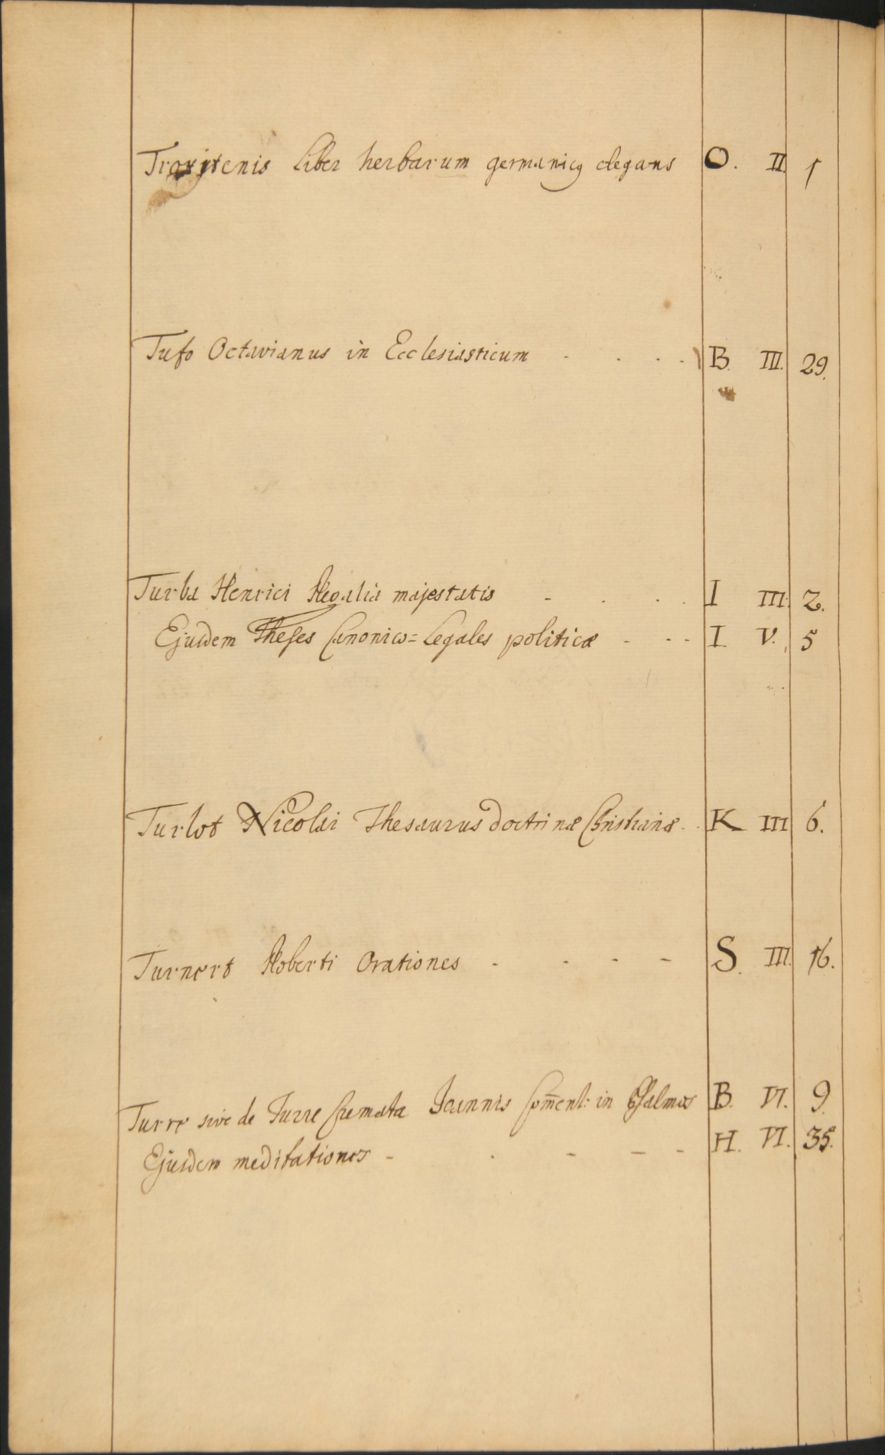 Liber herbarum germanicq elegans O. II. 1
Tufo Octavianus in Ecclesiasticum - . . . B. III. 29.
Turba Henrici Regalia majestatis - . . . I III. 2.
Ejusdem Theses Canonico=Legales politicæ - - - I. V. 5
Turlot Nicolai Thesaurus doctrinæ Christianæ. . K III 6.
Turnert Roberti Orationes - - - - S. III. 16.
Turre sive de Turre Cremata Joannis Com̄ent: in Psalmos B. VI. 9.
Ejusdem meditationes - . - - - H. VI. 35.